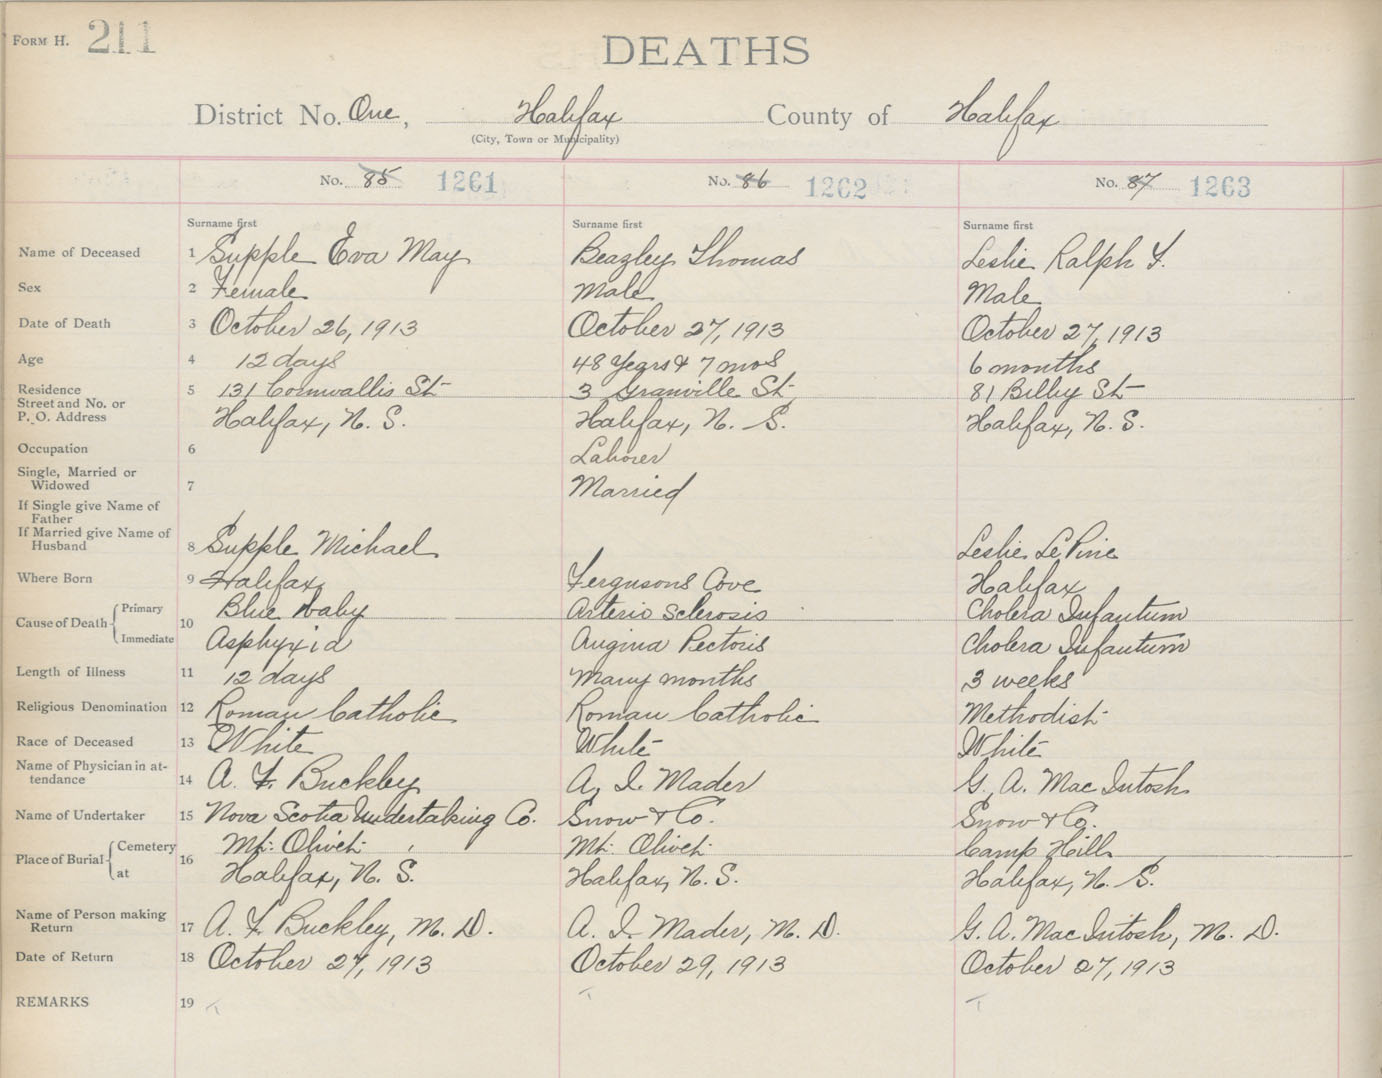 FORM H. 211
DEATHS
District No. One, Halifax County of Halifax
(City, Town or Municipality)
No. 85 1261 No. 86 1262 No. 87 1263
Surname first Surname first Surname first
Name of Deceased 1 Supple Eva May Beazley Thomas Leslie Ralph F.
Sex 2 Female Male Male
Date of Death 3 October 26, 1913 October 27, 1913 October 27, 1913
Age 4 12 days 48 Years & 7 mos 6 months
Residence 5 131 Cornwallis St 3 Granville St 81 Bilby St
Street and No. or
P. O. Address Halifax, N. S. Halifax, N. S. Halifax, N. S.
Occupation 6 Laborer
Single, Married or
Widowed 7 Married
If Single give Name of
Father
If Married give Name of
Husband 8 Supple Michael Leslie LePine
Where Born 9 Halifax Fergusons Cove Halifax
Cause of Death Primary 10 Blue baby Arterio Sclerosis Cholera Infantum
Immediate Asphyxia Angina Pectoris Cholera Infantum
Length of Illness 11 12 days Many months 3 weeks
Religious Denomination 12 Roman Catholic Roman Catholic Methodist
Race of Deceased 13 White White White
Name of Physician in at-
tendance 14 A. F. Buckley A. I. Mader G. A. MacIntosh
Name of Undertaker 15 Nova Scotia Undertaking Co. Snow & Co. Snow & Co.
Place of Burial Cemetery 16 Mt. Olivet Mt. Olivet Camp Hill
at Halifax, N. S. Halifax, N. S. Halifax, N. S.
Name of Person making
Return 17 A. F. Buckley, M. D. A. I. Mader, M. D. G. A. MacIntosh, M. D.
Date of Return 18 October 27, 1913 October 29, 1913 October 27, 1913
REMARKS 19